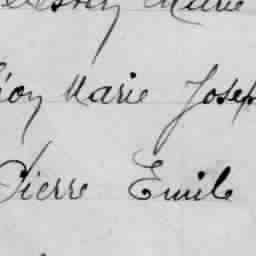 Marie
Marie Josep
Pierre Emile